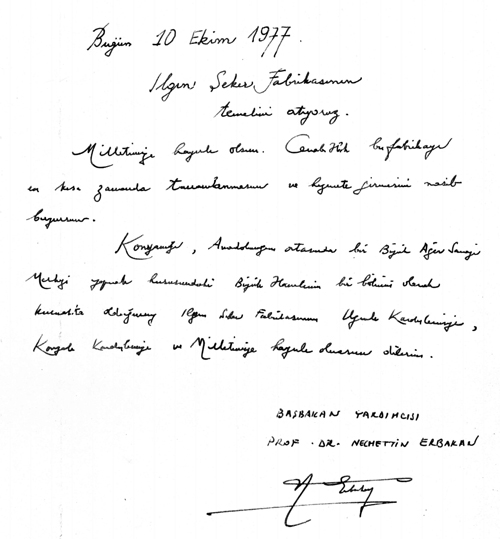 Bugün 10 Ekim 1977.
Ilgın Şeker Fabrikasının
temelini atıyoruz.
Milletimize hayırlı olsun. Cenab-ı Hak bu fabrikayı
en kısa zamanda tamamlanmasını ve hizmete girmesini nasib
buyursun.
Konya'mızı, Anadolu'nun ortasında bir Büyük Ağır Sanayi
Merkezi yapmak hususundaki Büyük Hamlenin bir bölümü olarak
kurmakta olduğumuz Ilgın Şeker Fabrikasının Ilgınlı Kardeşlerimize,
Konyalı Kardeşlerimize ve Milletimize hayırlı olmasını dilerim.
BAŞBAKAN YARDIMCISI
PROF. DR. NECMETTİN ERBAKAN